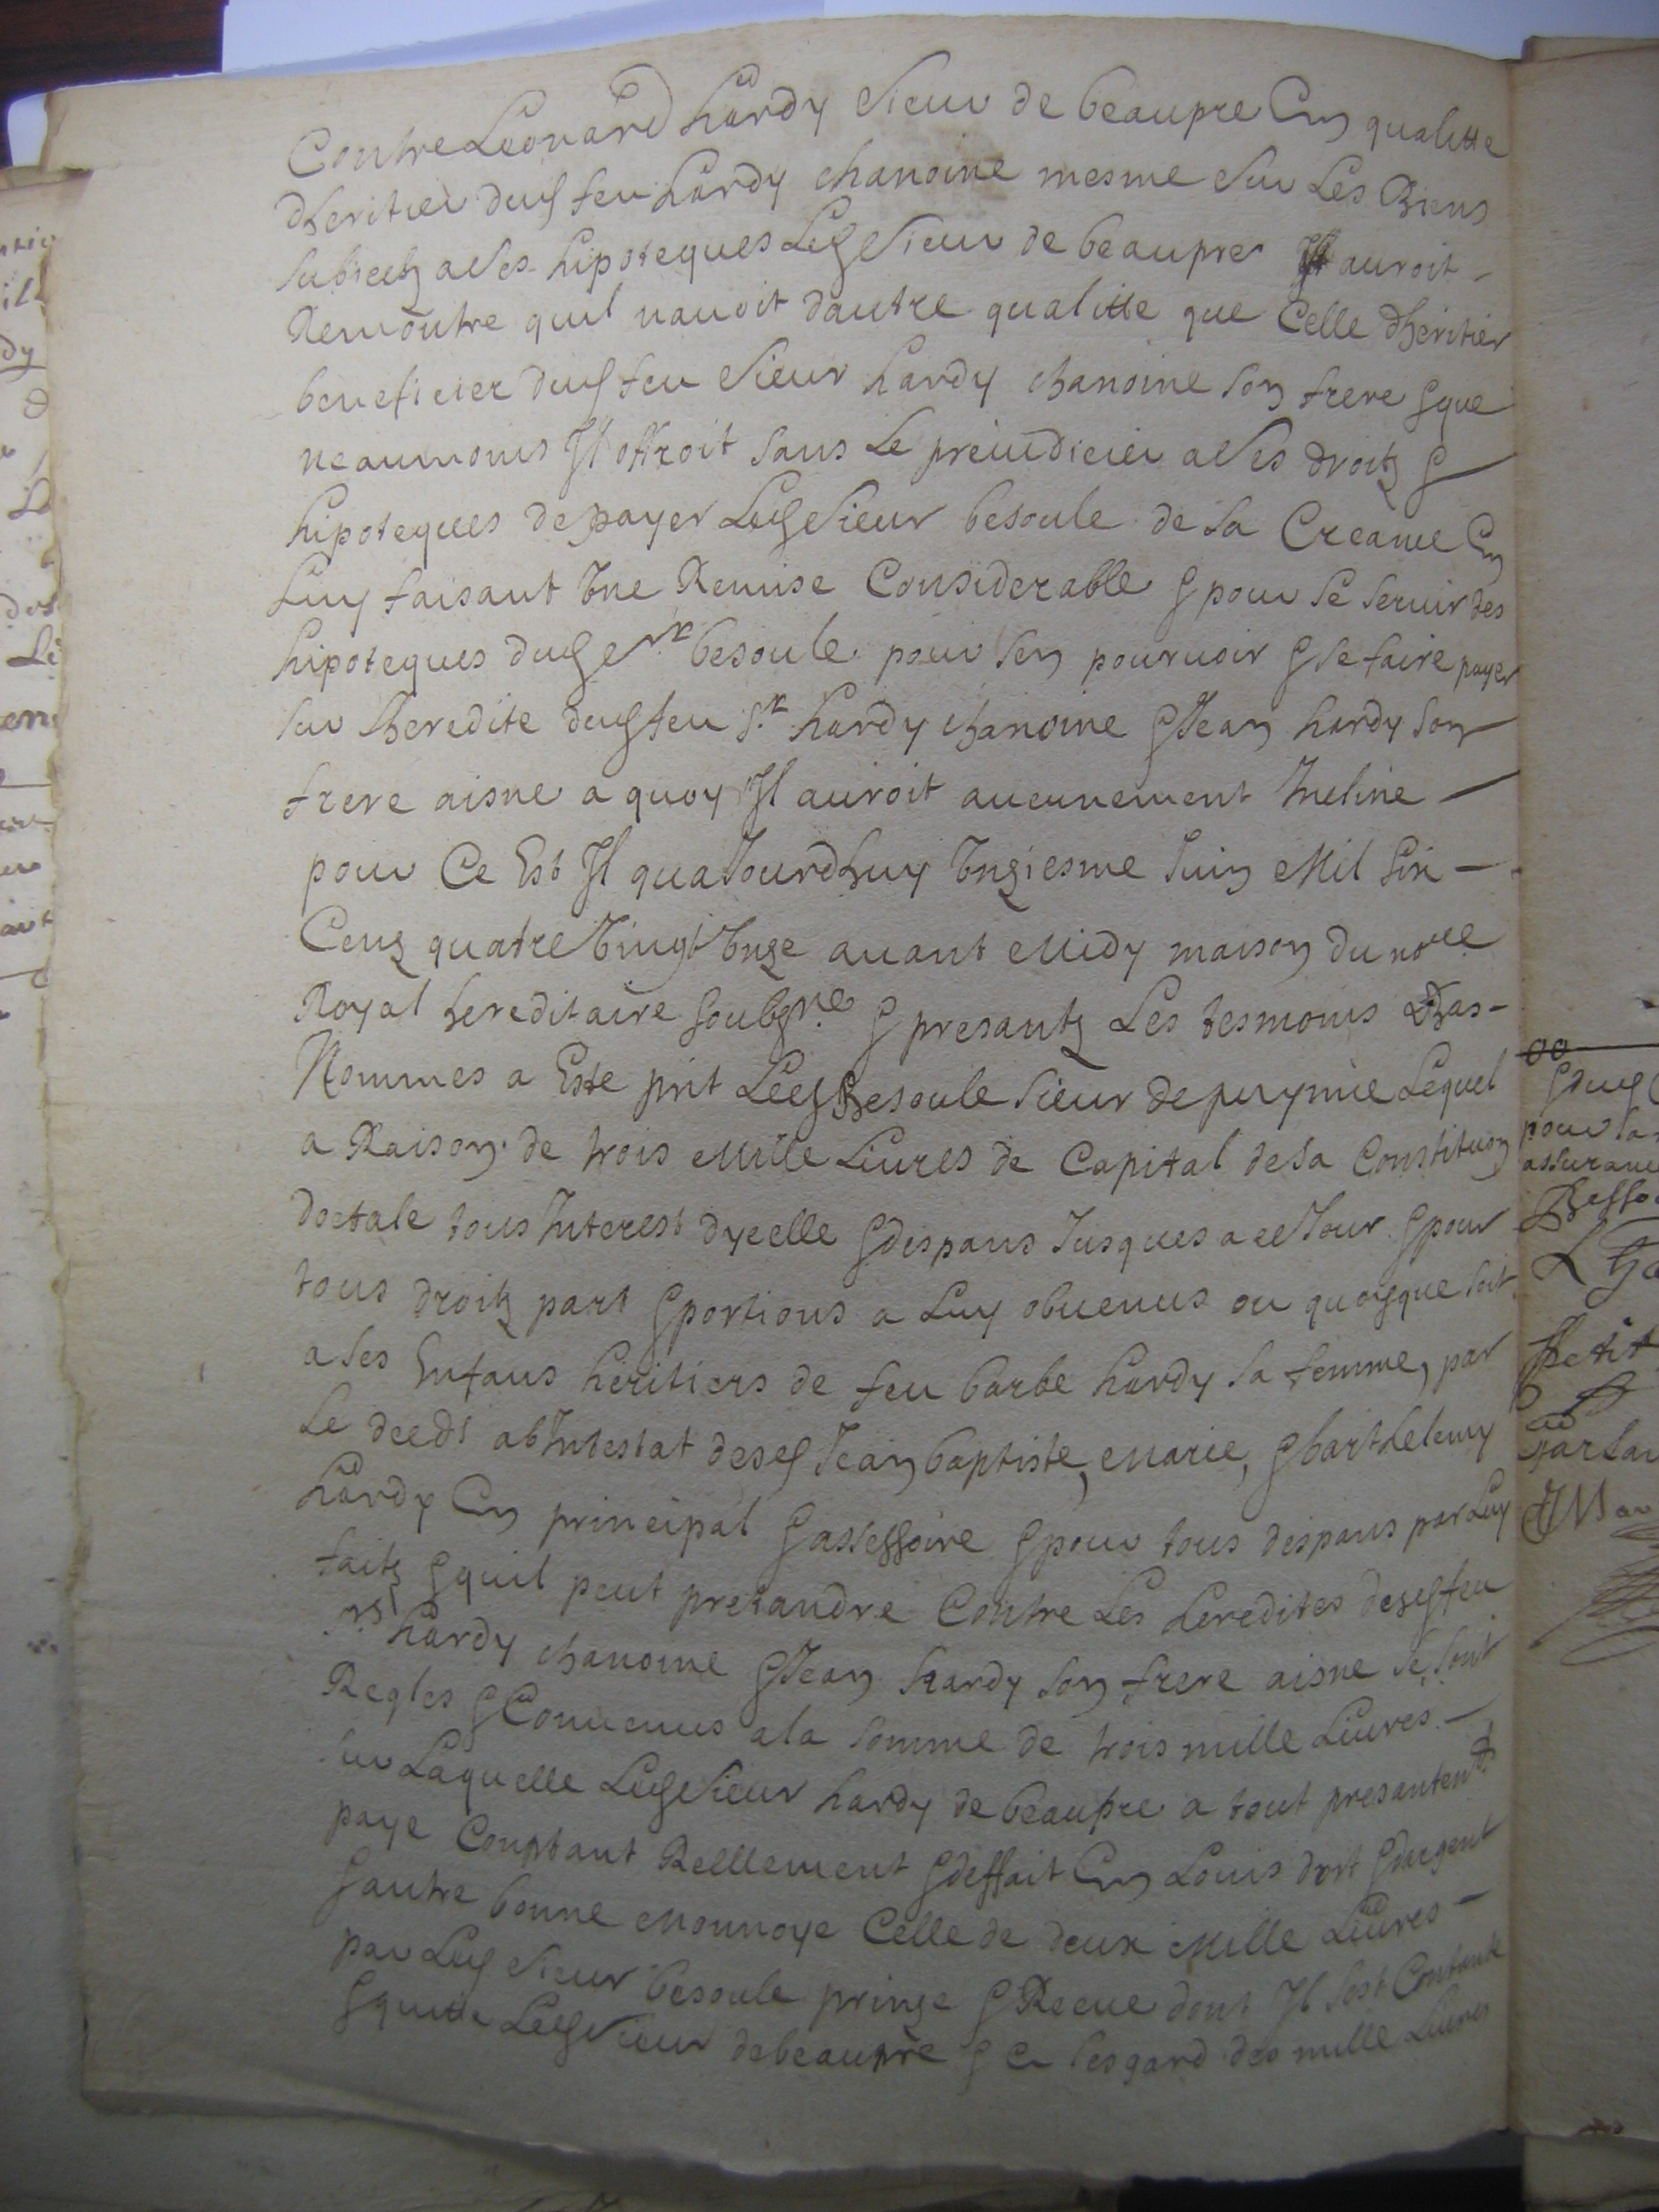 Contre Leonard hardy sieur de beaupre En qualitte
dheritier dud feu hardy chanoine mesme sur Les Biens
subiectz a ses hipoteques Led sieur de beaupre auroit
Remontre quil navoit dautre qualitte que Celle dheritier
beneficier dud feu sieur hardy chanoine son frere & que
neaumoins Il offroit sans Le preiudicier a ses droitz &
hipoteques de payer Led sieur besoule de sa Creance En
Luy faisant Une Remise Considerable & pour se servir des
hipoteques dud sr besoule pour sen pourvoir & se faire payer
sur lheredite dud feu sr hardy chanoine & Jean hardy son
frere aisne a quoy Il auroit aucunement Incline
pour Ce Est Il qua Jourdhuy Unziesme Juin Mil six
Cens quatre Vingt Unze avant Midy maison du nore
Royal hereditaire soubsne & presantz Les tesmoins Bas
Nommes a Este pnt Led Besoule sieur de puymie Lequel
a Raison de trois Mille Livres de Capital de la Constituon
doctale tous Interest dycelle & despans Jusques a ce Jour & pour
tous droitz part & portions a Luy obvenus ou quoyque soit
a ses Enfans heritiers de feu barbe hardy sa femme, par
Le deceds abIntestat desd Jean baptiste, Marie, & barthelemy
hardy En principal & assessoire & pour tous despans par Luy
faitz & quil peut pretandre Contre Les heredites desd feu
srs hardy chanoine & Jean hardy son frere aisne se sont
Regles & Convenus a la somme de trois mille Livres
sur Laquelle Led sieur hardy de beaupre a tout presantent
paye Comptant Relllement & deffait En Louis dort & dargent
& autre bonne Monnoye Celle de deux Mille Livres
par Led sieur besoule prinze & Receue dont Il sest Contante
& quitte Led sieur de beaupre & a lesgard des mille Livres
& dud
pour la
Petit